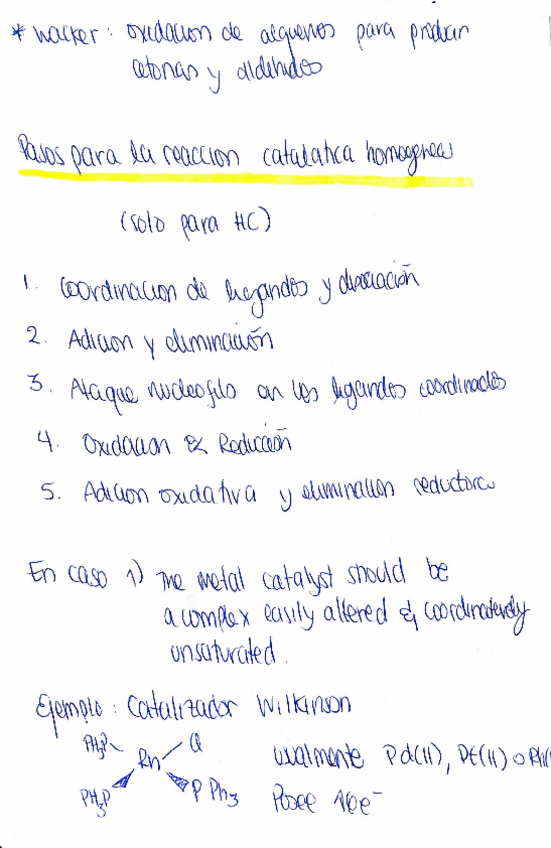 * Wacker: oxidacion de alquenos para producir
cetonas y aldehidos
Pasos para la reaccion catalatica homogenea
(solo para HC)
1. Coordinacion de ligandos y disociación
2. Adicion y eliminación
3. Ataque nucleofilo en los ligandos coordinados
4. Oxidacion & Reducción
5. Adicion oxidativa y eliminacion reductora
En caso 1) The metal catalyst should be
a complex easily altered & coordinatendy
unsaturated.
Ejemplo: Catalizador Wilkinson
Ph3P Cl
Rh
usualmente Pd(II), Pt(II) o Rh(
Ph3P PPh3
Posee 16e-